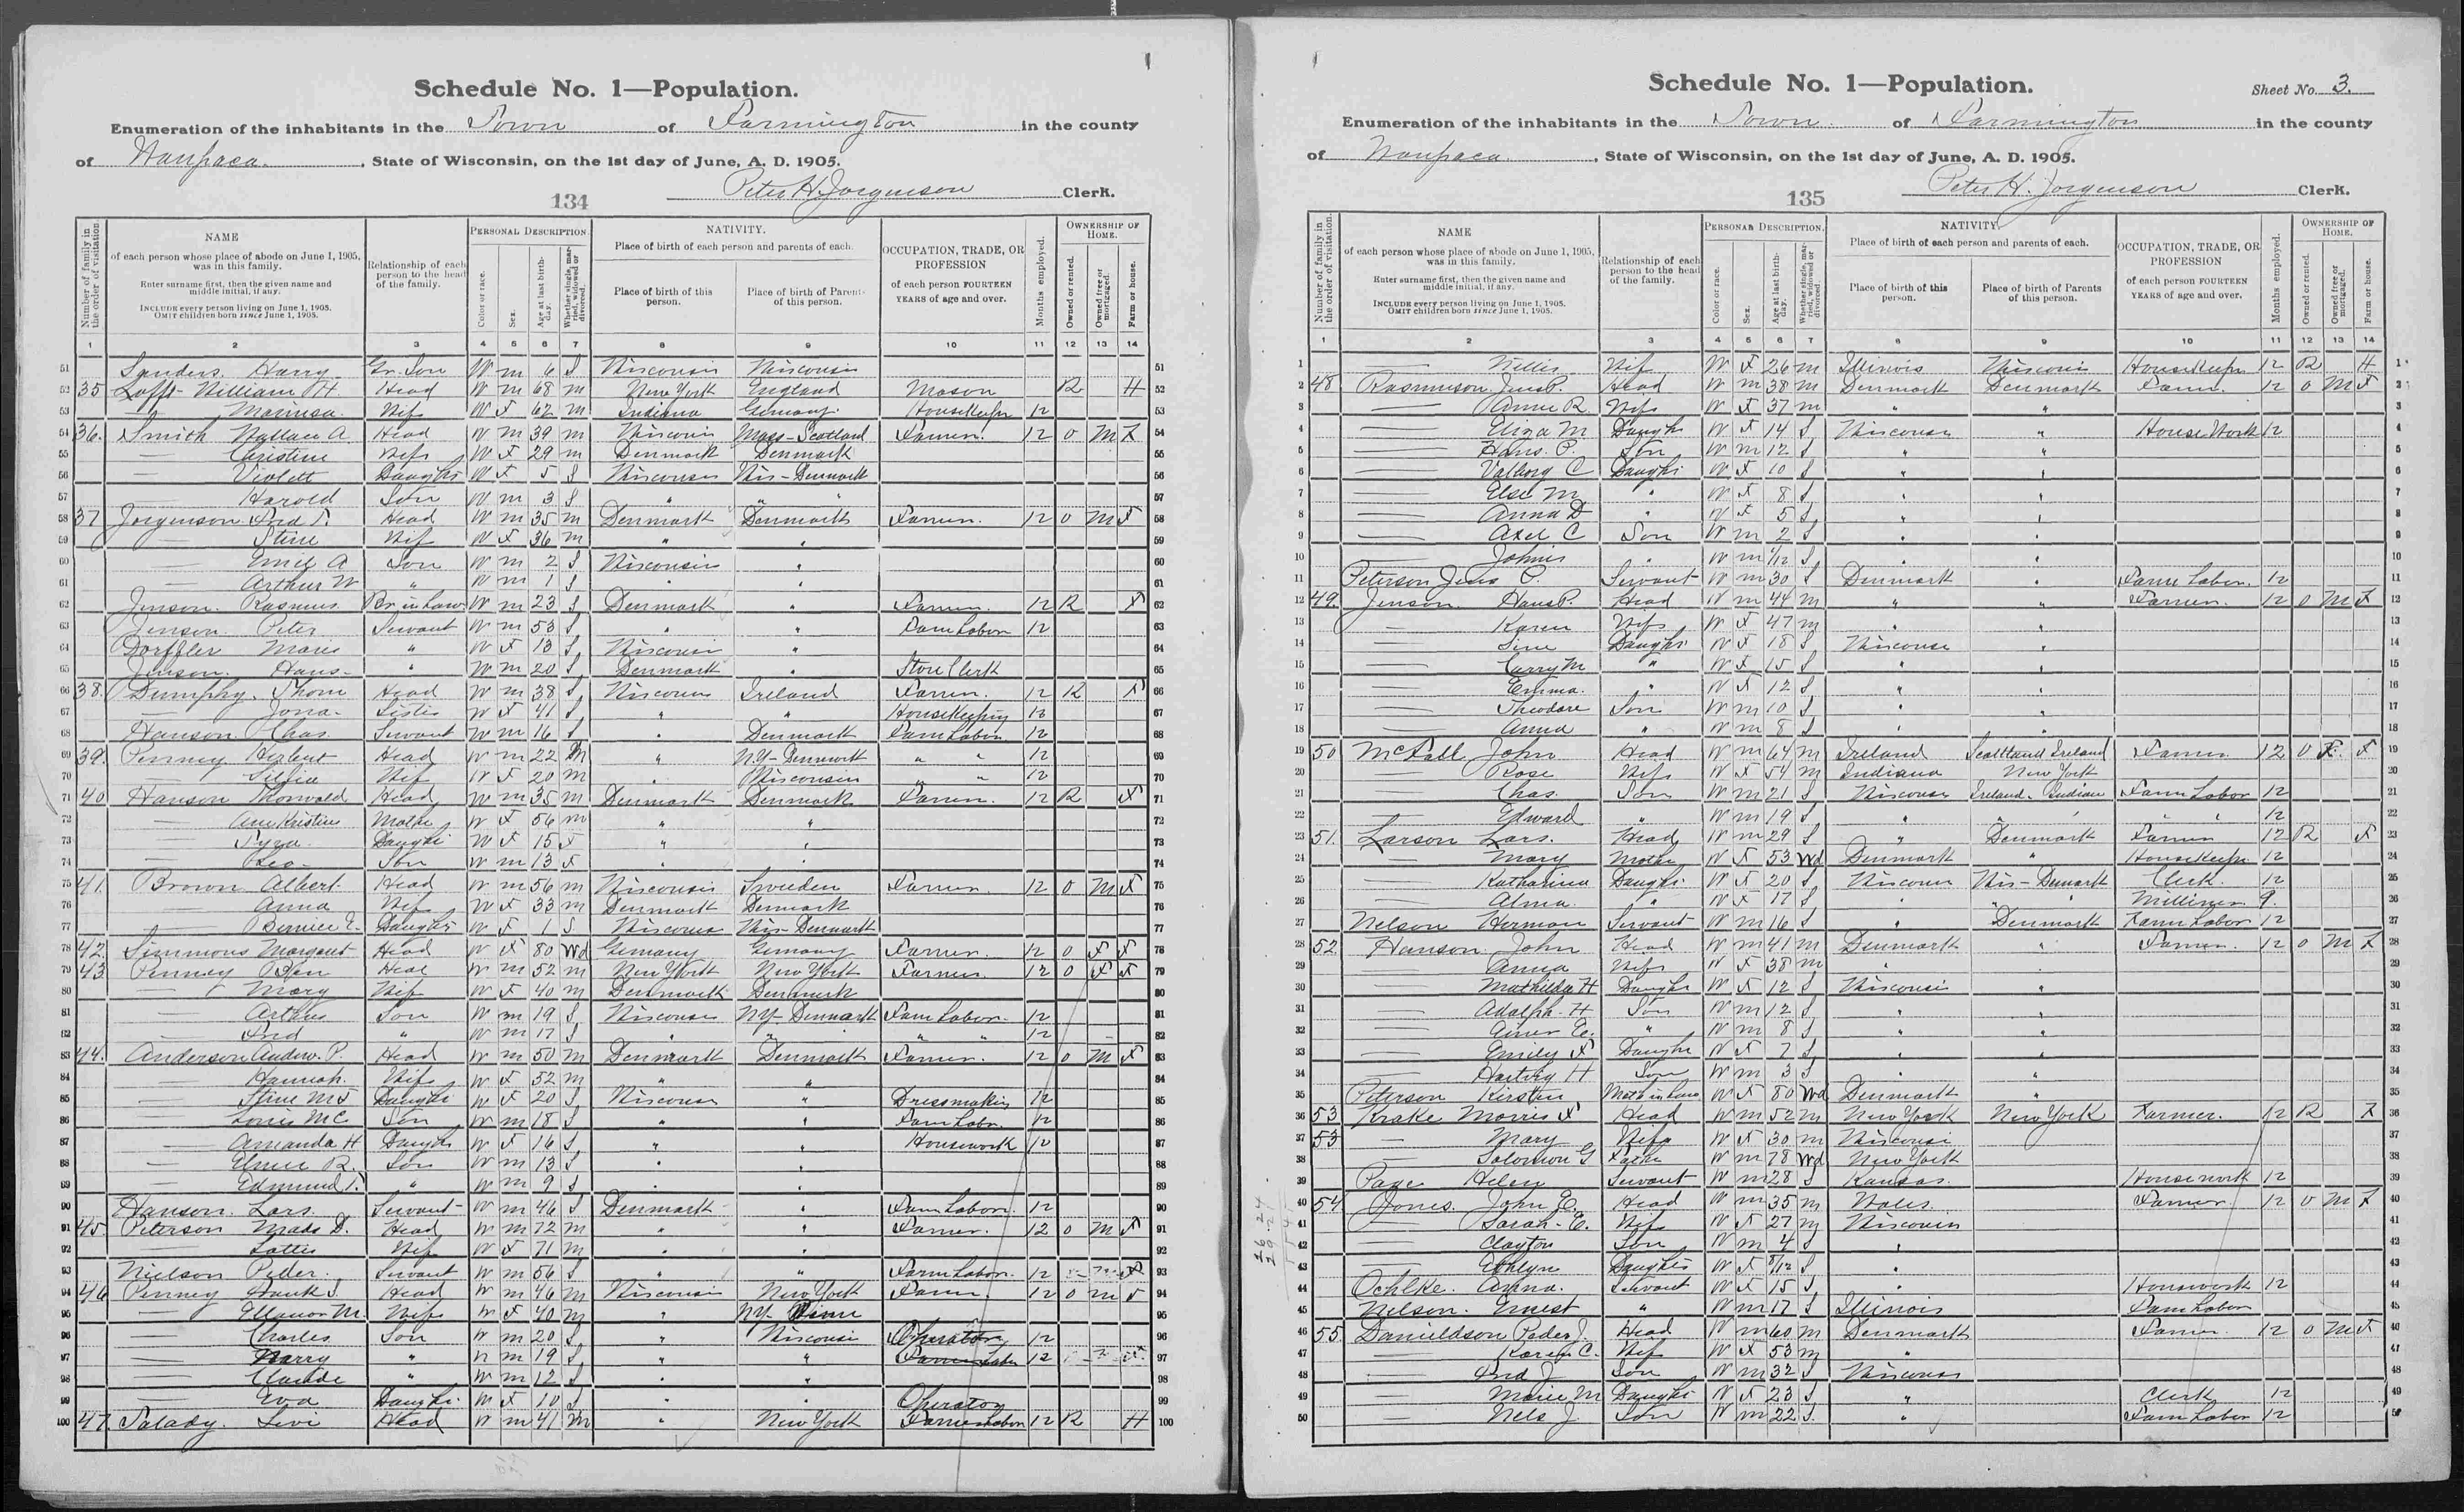 Schedule No. 1—Population.
Enumeration of the inhabitants in the Town of Farmington in the county
of Waupaca, State of Wisconsin, on the 1st day of June, A. D. 1905.
Peter H. Jorgenson Clerk.
134
Number of family in the order of visitation.
NAME
of each person whose place of abode on June 1, 1905, was in this family.
Enter surname first, then the given name and middle initial, if any.
INCLUDE every person living on June 1, 1905.
OMIT children born since June 1, 1905.
Relationship of each person to the head of the family.
PERSONAL DESCRIPTION.
Color or race.
Sex.
Age at last birthday.
Whether single, married, widowed or divorced.
NATIVITY.
Place of birth of each person and parents of each.
Place of birth of this person.
Place of birth of Parents of this person.
OCCUPATION, TRADE, OR PROFESSION
of each person FOURTEEN YEARS of age and over.
Months employed.
OWNERSHIP OF HOME.
Owned or rented.
Owned free or mortgaged.
Farm or house.
1 2 3 4 5 6 7 8 9 10 11 12 13 14
51 Sanders Harry Gr. Son W m 6 S Wisconsin Wisconsin 51
52 35 William H Head W m 68 m New York England Mason R H 52
53 — Wife W F 62 m Indiana Germany Housekeeper 12 53
54 36. Smith Wallace A. Head W m 39 m Wisconsin Mass-Scotland Farmer. 12 O M F 54
55 — Christine Wife W F 29 m Denmark Denmark 55
56 — Violett Daughter W F 5 S Wisconsin Wis-Denmark 56
57 — Harold Son W m 3 S " " " 57
58 37 Jorgenson Fred T. Head W m 35 m Denmark Denmark Farmer. 12 O M F 58
59 — Stine Wife W F 36 m " " 59
60 — Emil A Son W m 2 S Wisconsin " 60
61 — Arthur W " W m 1 S " " 61
62 Jenson. Rasmus Br in Law W m 23 S Denmark " Farmer. 12 R F 62
63 Jenson Peter Servant W m 53 S " " Farm Labor 12 63
64 Dorffler Marie " W F 13 S Wisconsin " 64
65 Jenson. Hans " W m 20 S Denmark " Store Clerk 65
66 38. Dumphy. Thom Head W m 38 S Wisconsin Ireland Farmer. 12 R F 66
67 — Sister W F 41 S " " Housekeeping 12 67
68 Hanson Chas. Servant W m 16 S " Denmark Farm Labor 12 68
69 39. Penney Herbert Head W m 22 M " NY-Denmark " " 12 69
70 — Lillian Wife W F 20 m " Wisconsin " " 12 70
71 40 Hanson Thorwald Head W m 35 m Denmark Denmark Farmer. 12 R F 71
72 — Ane Kristine Mother W F 56 m " " 72
73 — Tyra Daughter W F 15 " " 73
74 — Leo Son W m 13 " " 74
75 41. Brown Albert. Head W m 56 m Wisconsin Sweeden Farmer. 12 O M F 75
76 — Anna Wife W F 33 m Denmark Denmark 76
77 — Bernice E. Daughter W F 1 S Wisconsin Wis-Denmark 77
78 42. Simmons Margaret Head W F 80 Wd Germany Germany Farmer. 12 O F F 78
79 43 Penney Ben Head W m 52 m New York New York Farmer. 12 O F F 79
80 — Mary Wife W F 40 m Denmark Denmark 80
81 — Arthur Son W m 19 S Wisconsin NY-Denmark Farm Labor. 12 81
82 — Fred " W m 17 S " " " " " 12 82
83 44. Anderson Andrew. P. Head W m 50 m Denmark Denmark Farmer. 12 O M F 83
84 — Hannah. Wife W F 52 m " " 84
85 — Stine M Daughter W F 20 S Wisconsin " Dressmaking 12 85
86 — Louis Mc Son W m 18 S " " Farm Labor 12 86
87 — Amanda H Daughter W F 16 S " " Housework 12 87
88 — Elmer R. Son W m 13 S " " 88
89 — Edmund T. " W m 9 S " " 89
90 Hanson. Lars. Servant W m 46 S Denmark " Farm Labor. 12 90
91 45. Peterson Mads D. Head W m 72 m " " Farmer. 12 O M F 91
92 — Lottie Wife W F 71 m " " 92
93 Nielson Peder. Servant W m 56 S " " Farm Labor. 12 93
94 46 Penney Frank S. Head W m 46 m Wisconsin New York Farmer. 12 O M F 94
95 — Ellanor M. Wife W F 40 m " NY 95
96 — Charles Son W m 20 S " Wisconsin Operator 12 96
97 — Harry " W m 19 S " " Farm Labor 12 97
98 — Claude " W m 12 S " " 98
99 — Eva Daughter W F 10 S " " Operator 99
100 47. Salady Levi Head W m 41 m " New York Farm Labor 12 R H 100
Schedule No. 1—Population. Sheet No. 3.
Enumeration of the inhabitants in the Town of Farmington in the county
of Waupaca, State of Wisconsin, on the 1st day of June, A. D. 1905.
Peter H. Jorgenson Clerk.
135
Number of family in the order of visitation.
NAME
of each person whose place of abode on June 1, 1905, was in this family.
Enter surname first, then the given name and middle initial, if any.
INCLUDE every person living on June 1, 1905.
OMIT children born since June 1, 1905.
Relationship of each person to the head of the family.
PERSONAL DESCRIPTION.
Color or race.
Sex.
Age at last birthday.
Whether single, married, widowed or divorced.
NATIVITY.
Place of birth of each person and parents of each.
Place of birth of this person.
Place of birth of Parents of this person.
OCCUPATION, TRADE, OR PROFESSION
of each person FOURTEEN YEARS of age and over.
Months employed.
OWNERSHIP OF HOME.
Owned or rented.
Owned free or mortgaged.
Farm or house.
1 2 3 4 5 6 7 8 9 10 11 12 13 14
1 — Wife W F 26 m Illinois Wisconsin Housekeeper 12 R H 1
2 48 Rasmuson Jens P. Head W m 38 m Denmark Denmark Farmer. 12 O M F 2
3 — Anne R. Wife W F 37 m " " 3
4 — Eliza M Daughter W F 14 S Wisconsin " House Work 12 4
5 — Hans. P. Son W m 12 S " " 5
6 — Valborg C Daughter W F 10 S " " 6
7 — Else M " W F 8 S " " 7
8 — Anna D " W F 5 S " " 8
9 — Axel C Son W m 2 S " " 9
10 — " W m 1/12 S " " 10
11 Peterson Jens P. Servant W m 30 S Denmark " Farm Labor. 12 11
12 49. Jenson. Hans P. Head W m 44 m " " Farmer. 12 O M F 12
13 — Karen Wife W F 47 m " " 13
14 — Sine Daughter W F 18 S Wisconsin " 14
15 — Carry M " W F 15 S " " 15
16 — Emma. " W F 12 S " " 16
17 — Theodore Son W m 10 S " " 17
18 — Anna " W m 8 S " " 18
19 50 McCall John Head W m 64 m Ireland Scottland Ireland Farmer 12 O F. F 19
20 — Rose Wife W F 54 m Indiana New York 20
21 — Chas. Son W m 21 S Wisconsin Ireland. Indiana Farm Labor 12 21
22 — Edward " W m 19 S " " " " " 12 22
23 51. Larson Lars. Head W m 29 S " Denmark Farmer 12 R F 23
24 — Mary Mother W F 53 Wd Denmark " Housekeeper 12 24
25 — Katharina Daughter W F 20 S Wisconsin Wis-Denmark Clerk. 12 25
26 — Alma. " W F 17 S " " " Milliner 9. 26
27 Nelson Herman Servant W m 16 S " Denmark Farm Labor 12 27
28 52 Hanson John Head W m 41 m Denmark " Farmer. 12 O M F 28
29 — Anna Wife W F 38 m " " 29
30 — Mathilda H Daughter W F 12 S Wisconsin " 30
31 — Adolph. H Son W m 12 S " " 31
32 — Einer E. " W m 8 S " " 32
33 — Emily F Daughter W F 7 S " " 33
34 — Hartvig H Son W m 3 S " " 34
35 Peterson Kirsten Moth in Law W F 80 Wd Denmark " 35
36 53 Krake Morris F Head W m 52 m New York New York Farmer. 12 R F 36
37 53 — Mary Wife W F 30 m Wisconsin 37
38 — Solomon G Father W m 78 Wd New York 38
39 Page Helen Servant W m 28 S Kansas. Housework 12 39
40 54 Jones. John E. Head W m 35 m Wales. Farmer 12 O M F 40
41 — Sarah-E. Wife W F 27 m Wisconsin 41
42 — Clayton Son W m 4 S " 42
43 — Evhlyn Daughter W F 8/12 S " 43
44 Ochlke. Anna. Servant W F 15 S " Housework 12 44
45 Nelson. Ernest " W m 17 S Illinois Farm Labor 45
46 55 Danieldson Peder J. Head W m 60 m Denmark Farmer 12 O M F 46
47 — Karen C. Wife W F 53 m " 47
48 — Fred J Son W m 32 S Wisconsin 48
49 — Marie M Daughter W F 23 S " Clerk 12 49
50 — Nels J Son W m 22 S. " Farm Labor 12 50